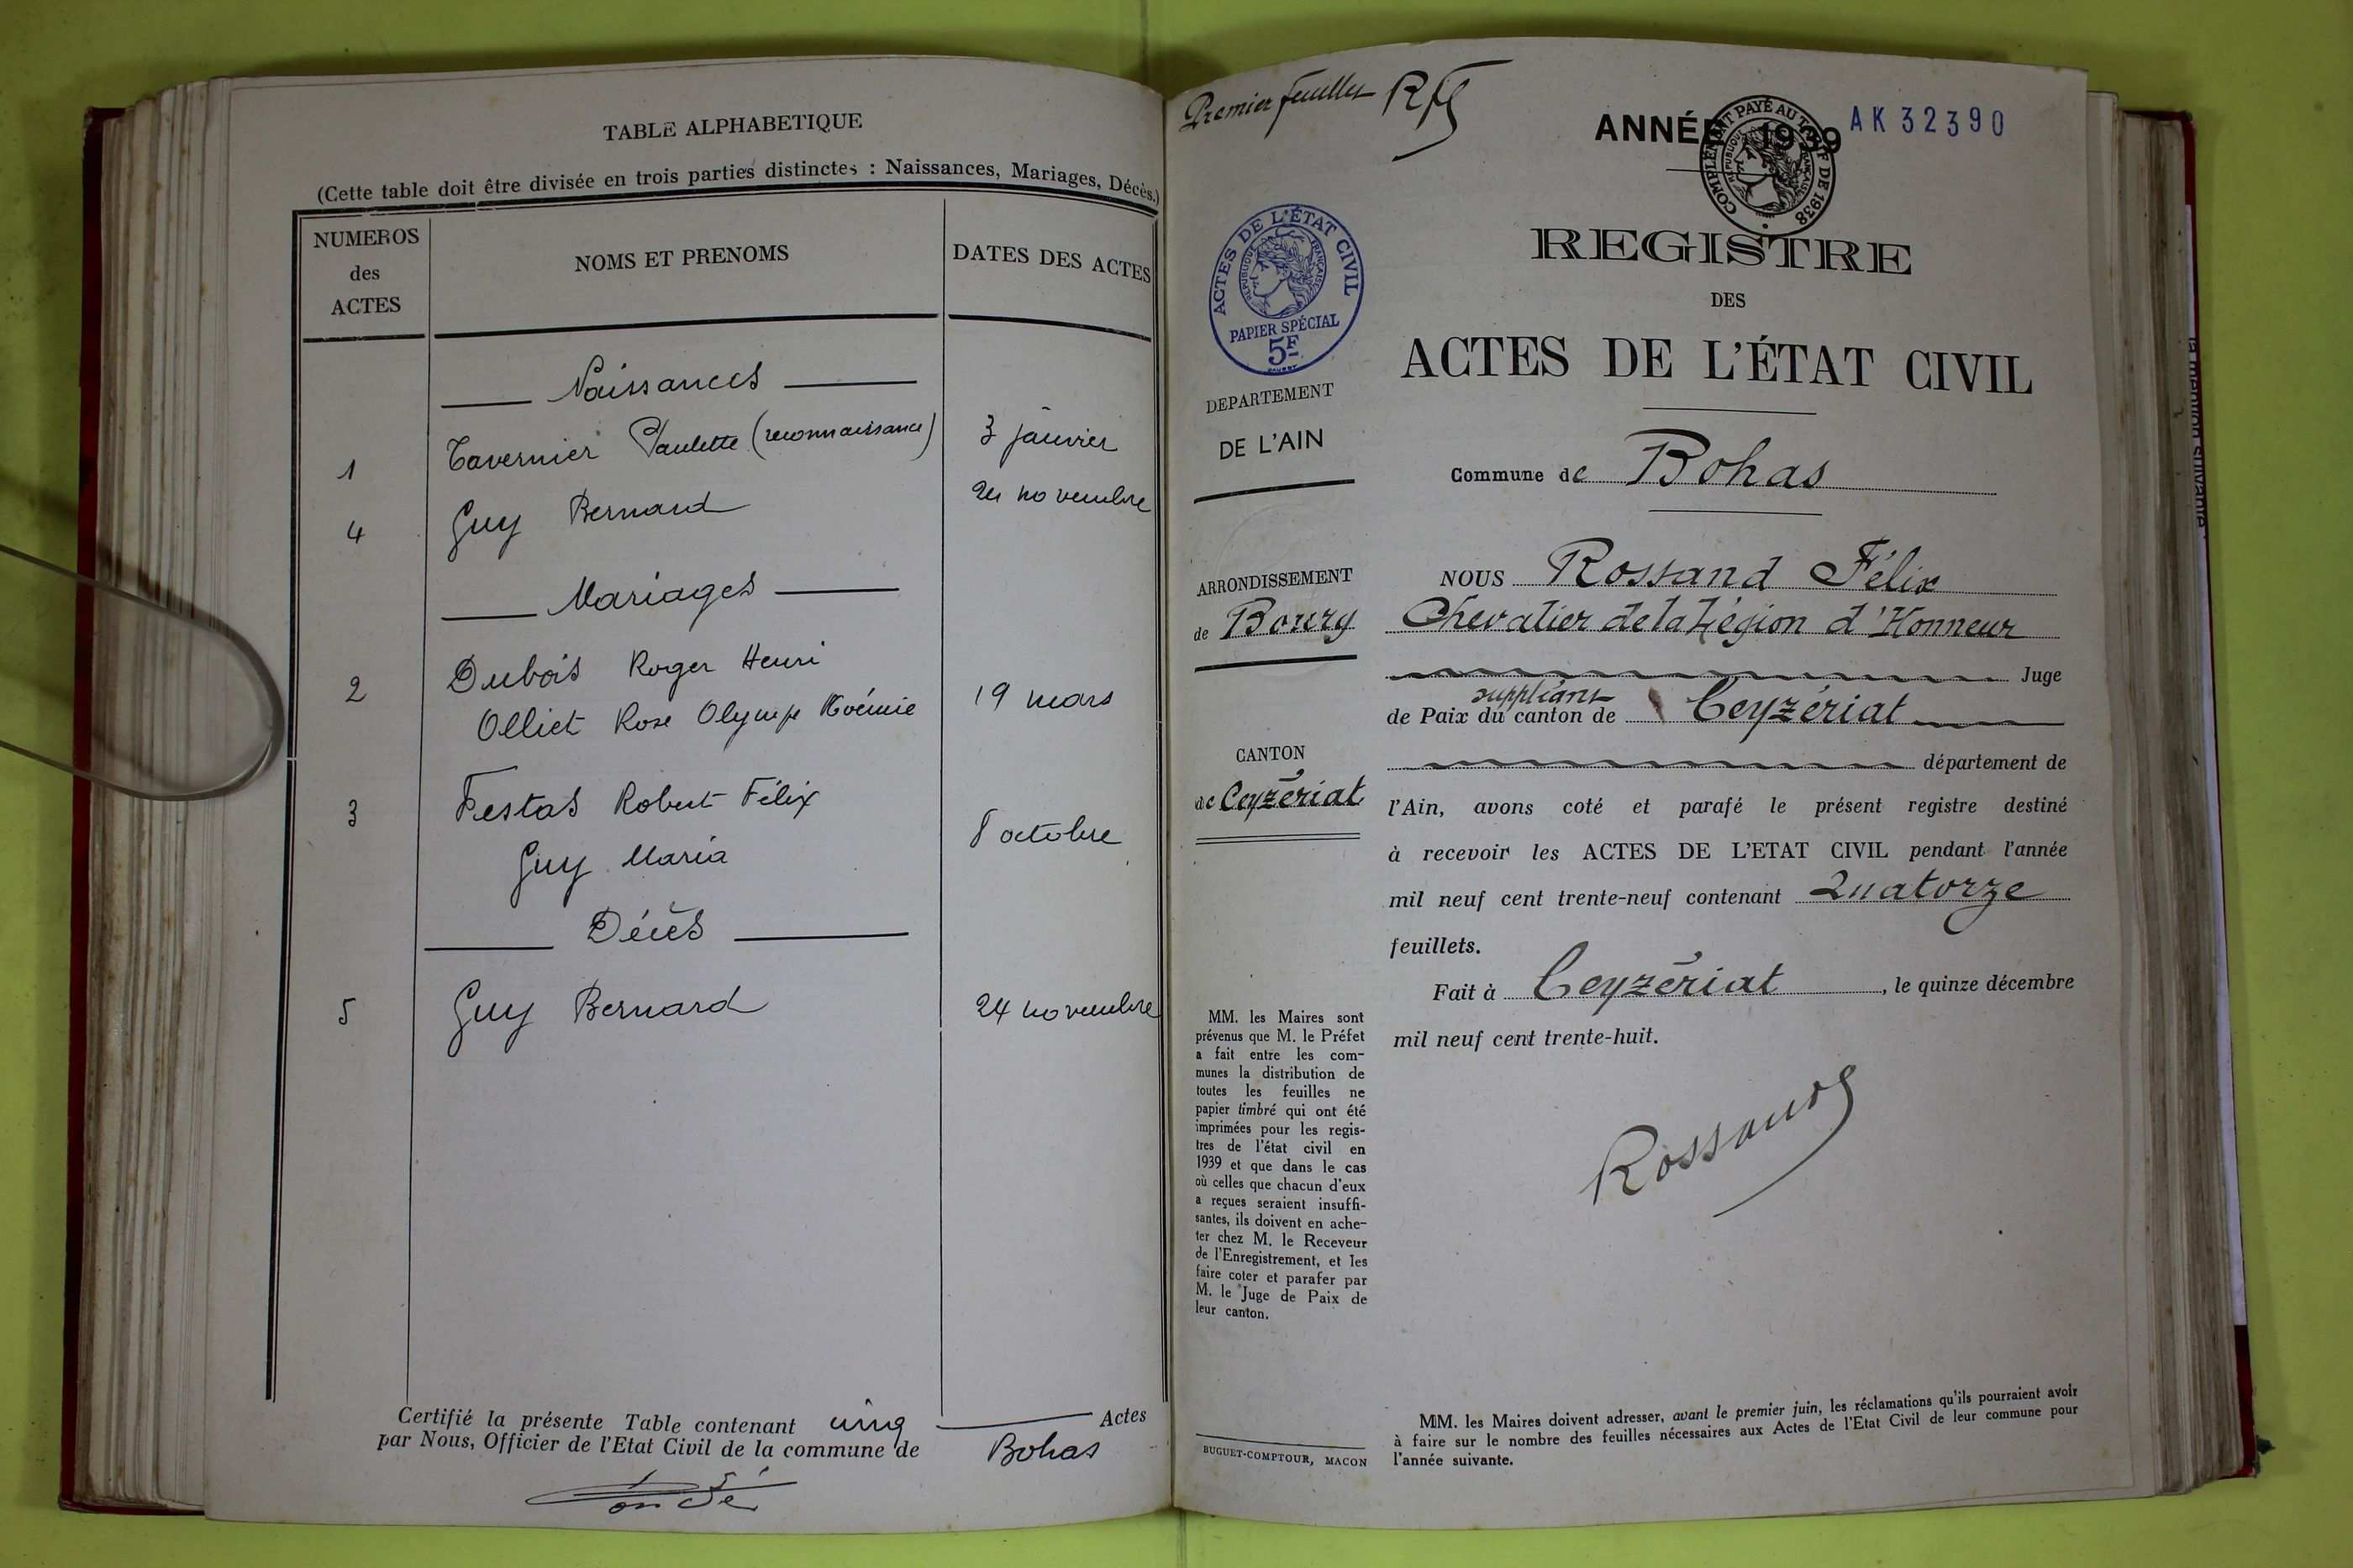 TABLE ALPHABETIQUE
(Cette table doit être divisée en trois parties distinctes : Naissances, Mariages, Décès.)
NUMEROS
des
ACTES
NOMS ET PRENOMS
DATES DES ACTES
Naissances
1 Tavernier Paulette (reconnaissance) 3 janvier
4 Guy Bernard 24 novembre
Mariages
2 Dubois Roger Henri
Olliet Rose Olympe Noémie 19 mars
3 Festas Robert Félix
Guy Maria 8 octobre
Décès
5 Guy Bernard 24 novembre
Certifié la présente Table contenant cinq Actes
par Nous, Officier de l'Etat Civil de la commune de Bohas
Premier feuillet
ANNÉE 1939
AK 32390
COMPLÉMENT PAYÉ AU TARIF DE 1938
RÉPUBLIQUE FRANÇAISE
ACTES DE L'ÉTAT CIVIL
RÉPUBLIQUE FRANÇAISE
PAPIER SPÉCIAL
5F
DEPARTEMENT
DE L'AIN
ARRONDISSEMENT
de Bourg
CANTON
de Ceyzériat
MM. les Maires sont
prévenus que M. le Préfet
a fait entre les com-
munes la distribution de
toutes les feuilles ne
papier timbré qui ont été
imprimées pour les regis-
tres de l'état civil en
1939 et que dans le cas
où celles que chacun d'eux
a reçues seraient insuffi-
santes, ils doivent en ache-
ter chez M. le Receveur
de l'Enregistrement, et les
faire coter et parafer par
M. le Juge de Paix de
leur canton.
BUGUET-COMPTOUR, MACON
REGISTRE
DES
ACTES DE L'ÉTAT CIVIL
Commune de Bohas
NOUS Rossand Félix
Chevalier de la Légion d'Honneur
Juge
suppléant
de Paix du canton de Ceyzériat
département de
l'Ain, avons coté et parafé le présent registre destiné
à recevoir les ACTES DE L'ETAT CIVIL pendant l'année
mil neuf cent trente-neuf contenant Quatorze
feuillets.
Fait à Ceyzériat, le quinze décembre
mil neuf cent trente-huit.
Rossand
MM. les Maires doivent adresser, avant le premier juin, les réclamations qu'ils pourraient avoir
à faire sur le nombre des feuilles nécessaires aux Actes de l'Etat Civil de leur commune pour
l'année suivante.